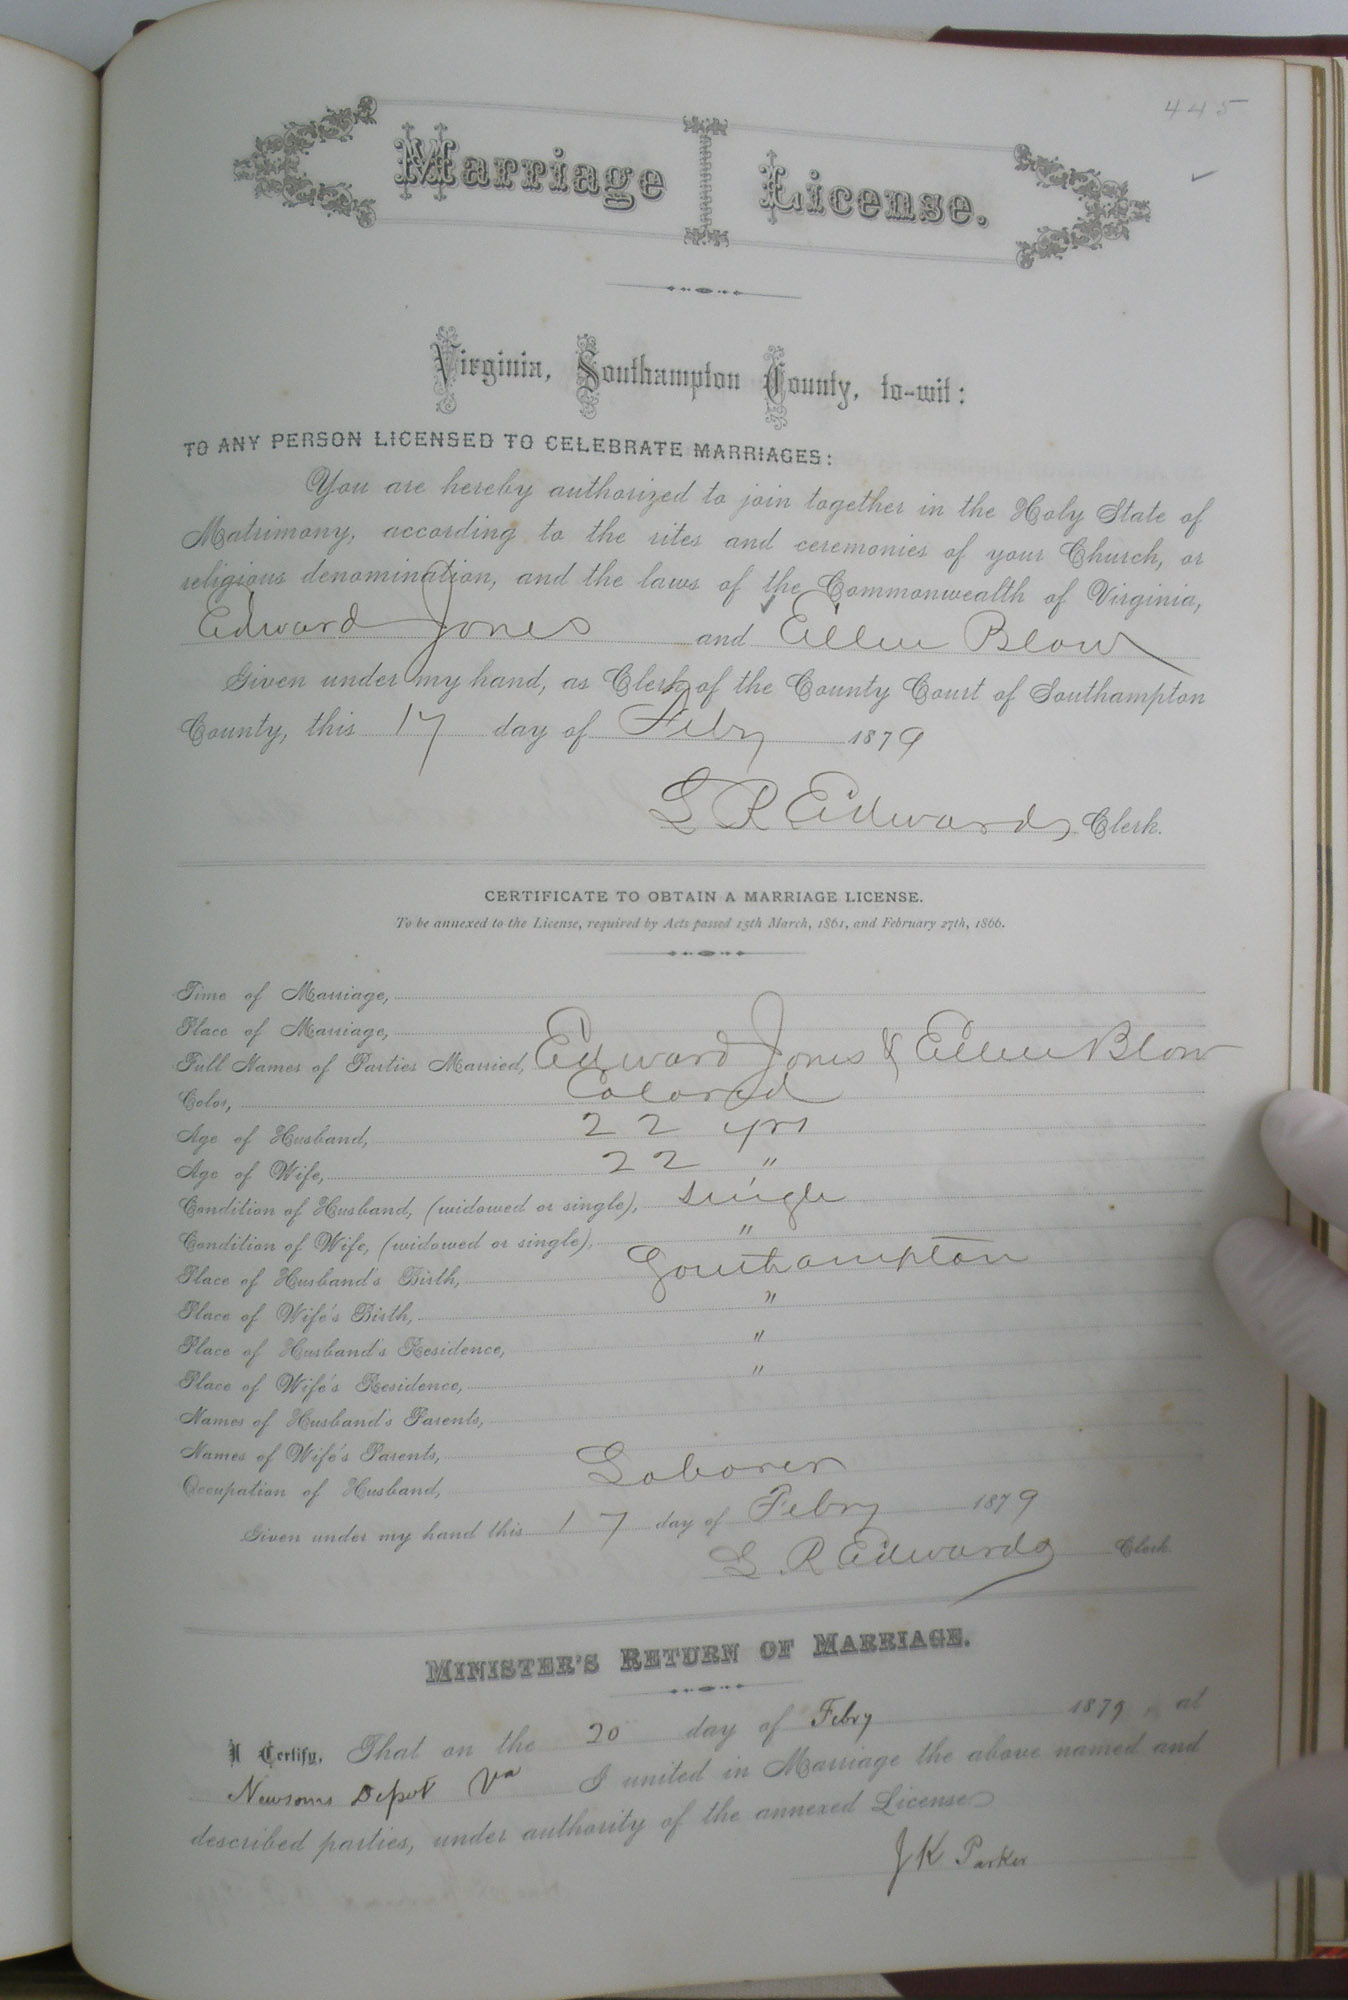 445
Marriage License.
Virginia, Southampton County, to-wit:
TO ANY PERSON LICENSED TO CELEBRATE MARRIAGES:
You are hereby authorized to join together in the Holy State of
Matrimony, according to the rites and ceremonies of your Church, or
religious denomination, and the laws of the Commonwealth of Virginia,
Edward Jones and Ellen Blow
Given under my hand, as Clerk of the County Court of Southampton
County, this 17 day of Feby 1879
L R Edwards, Clerk.
CERTIFICATE TO OBTAIN A MARRIAGE LICENSE.
To be annexed to the License, required by Acts passed 15th March, 1861, and February 27th, 1866.
Time of Marriage,
Place of Marriage,
Full Names of Parties Married, Edward Jones & Ellen Blow
Color, Colored
Age of Husband, 22 yrs
Age of Wife, 22 "
Condition of Husband, (widowed or single), single
Condition of Wife, (widowed or single), "
Place of Husband's Birth, Southampton
Place of Wife's Birth, "
Place of Husband's Residence, "
Place of Wife's Residence, "
Names of Husband's Parents,
Names of Wife's Parents,
Occupation of Husband, Laborer
Given under my hand this 17 day of Feby 1879
L R Edwards Clerk.
MINISTER'S RETURN OF MARRIAGE.
I Certify, That on the 20 day of Feby 1879, at
Newsoms Depot Va I united in Marriage the above named and
described parties, under authority of the annexed License
J K Parker